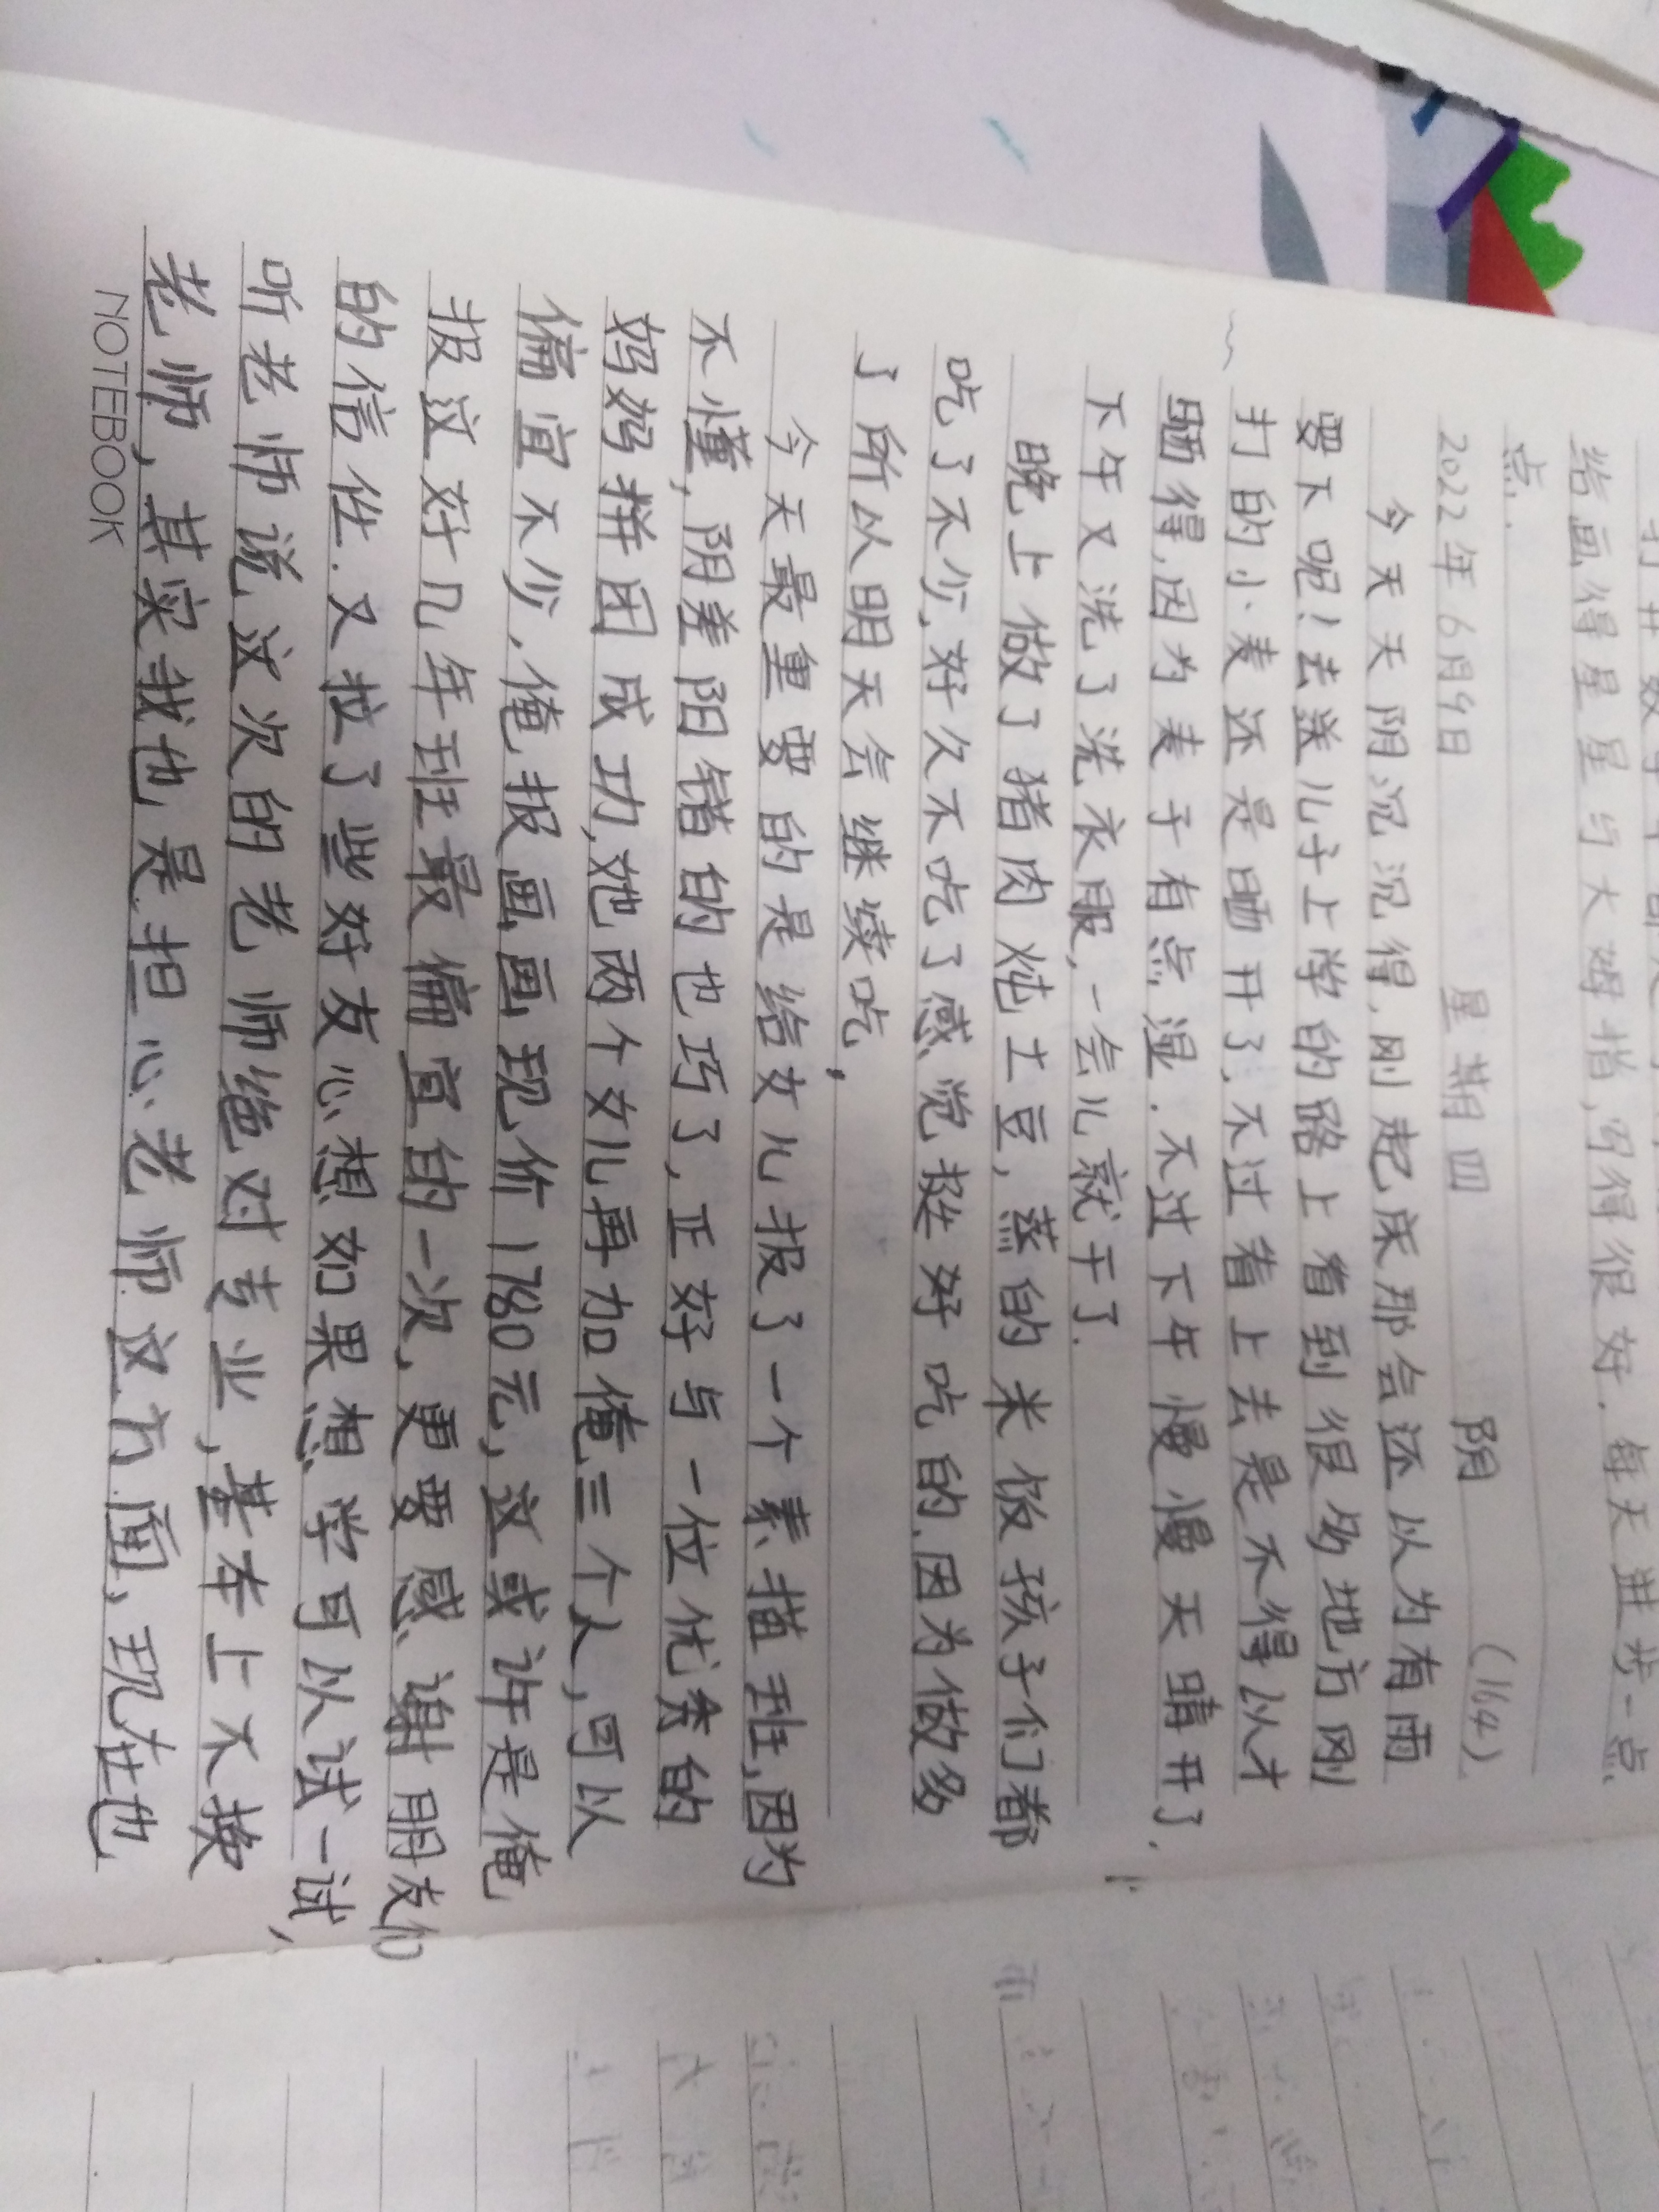 给画得星星与大姆指，写得很好．每天进步一点
点．
2022年6月9日 星期四 阴 （164）
今天天阴沉沉得，刚起床那会还以为有雨
要下呢！去送儿子上学的路上看到很多地方刚
打的小麦还是晒开了，不过看上去是不得以才
晒得，因为麦子有点湿．不过下午慢慢天晴开了．
下午又洗了洗衣服，一会儿就干了．
晚上做了猪肉炖土豆，蒸的米饭孩子们都
吃了不少，好久不吃了感觉挺好吃的．因为做多
了所以明天会继续吃，
今天最重要的是给女儿报了一个素描班，因为
不懂，阴差阳错的也巧了，正好与一位优秀的
妈妈拼团成功，她两个女儿再加俺三个人，可以
偏宜不少，俺报画画现价1780元，这或许是俺
报这好几年班最偏宜的一次，更要感谢朋友们
的信任．又拉了些好友心想如果想学可以试一试，
听老师说这次的老师绝对专业，基本上不换
老师，其实我也是担心老师这方面，现在也
NOTEBOOK